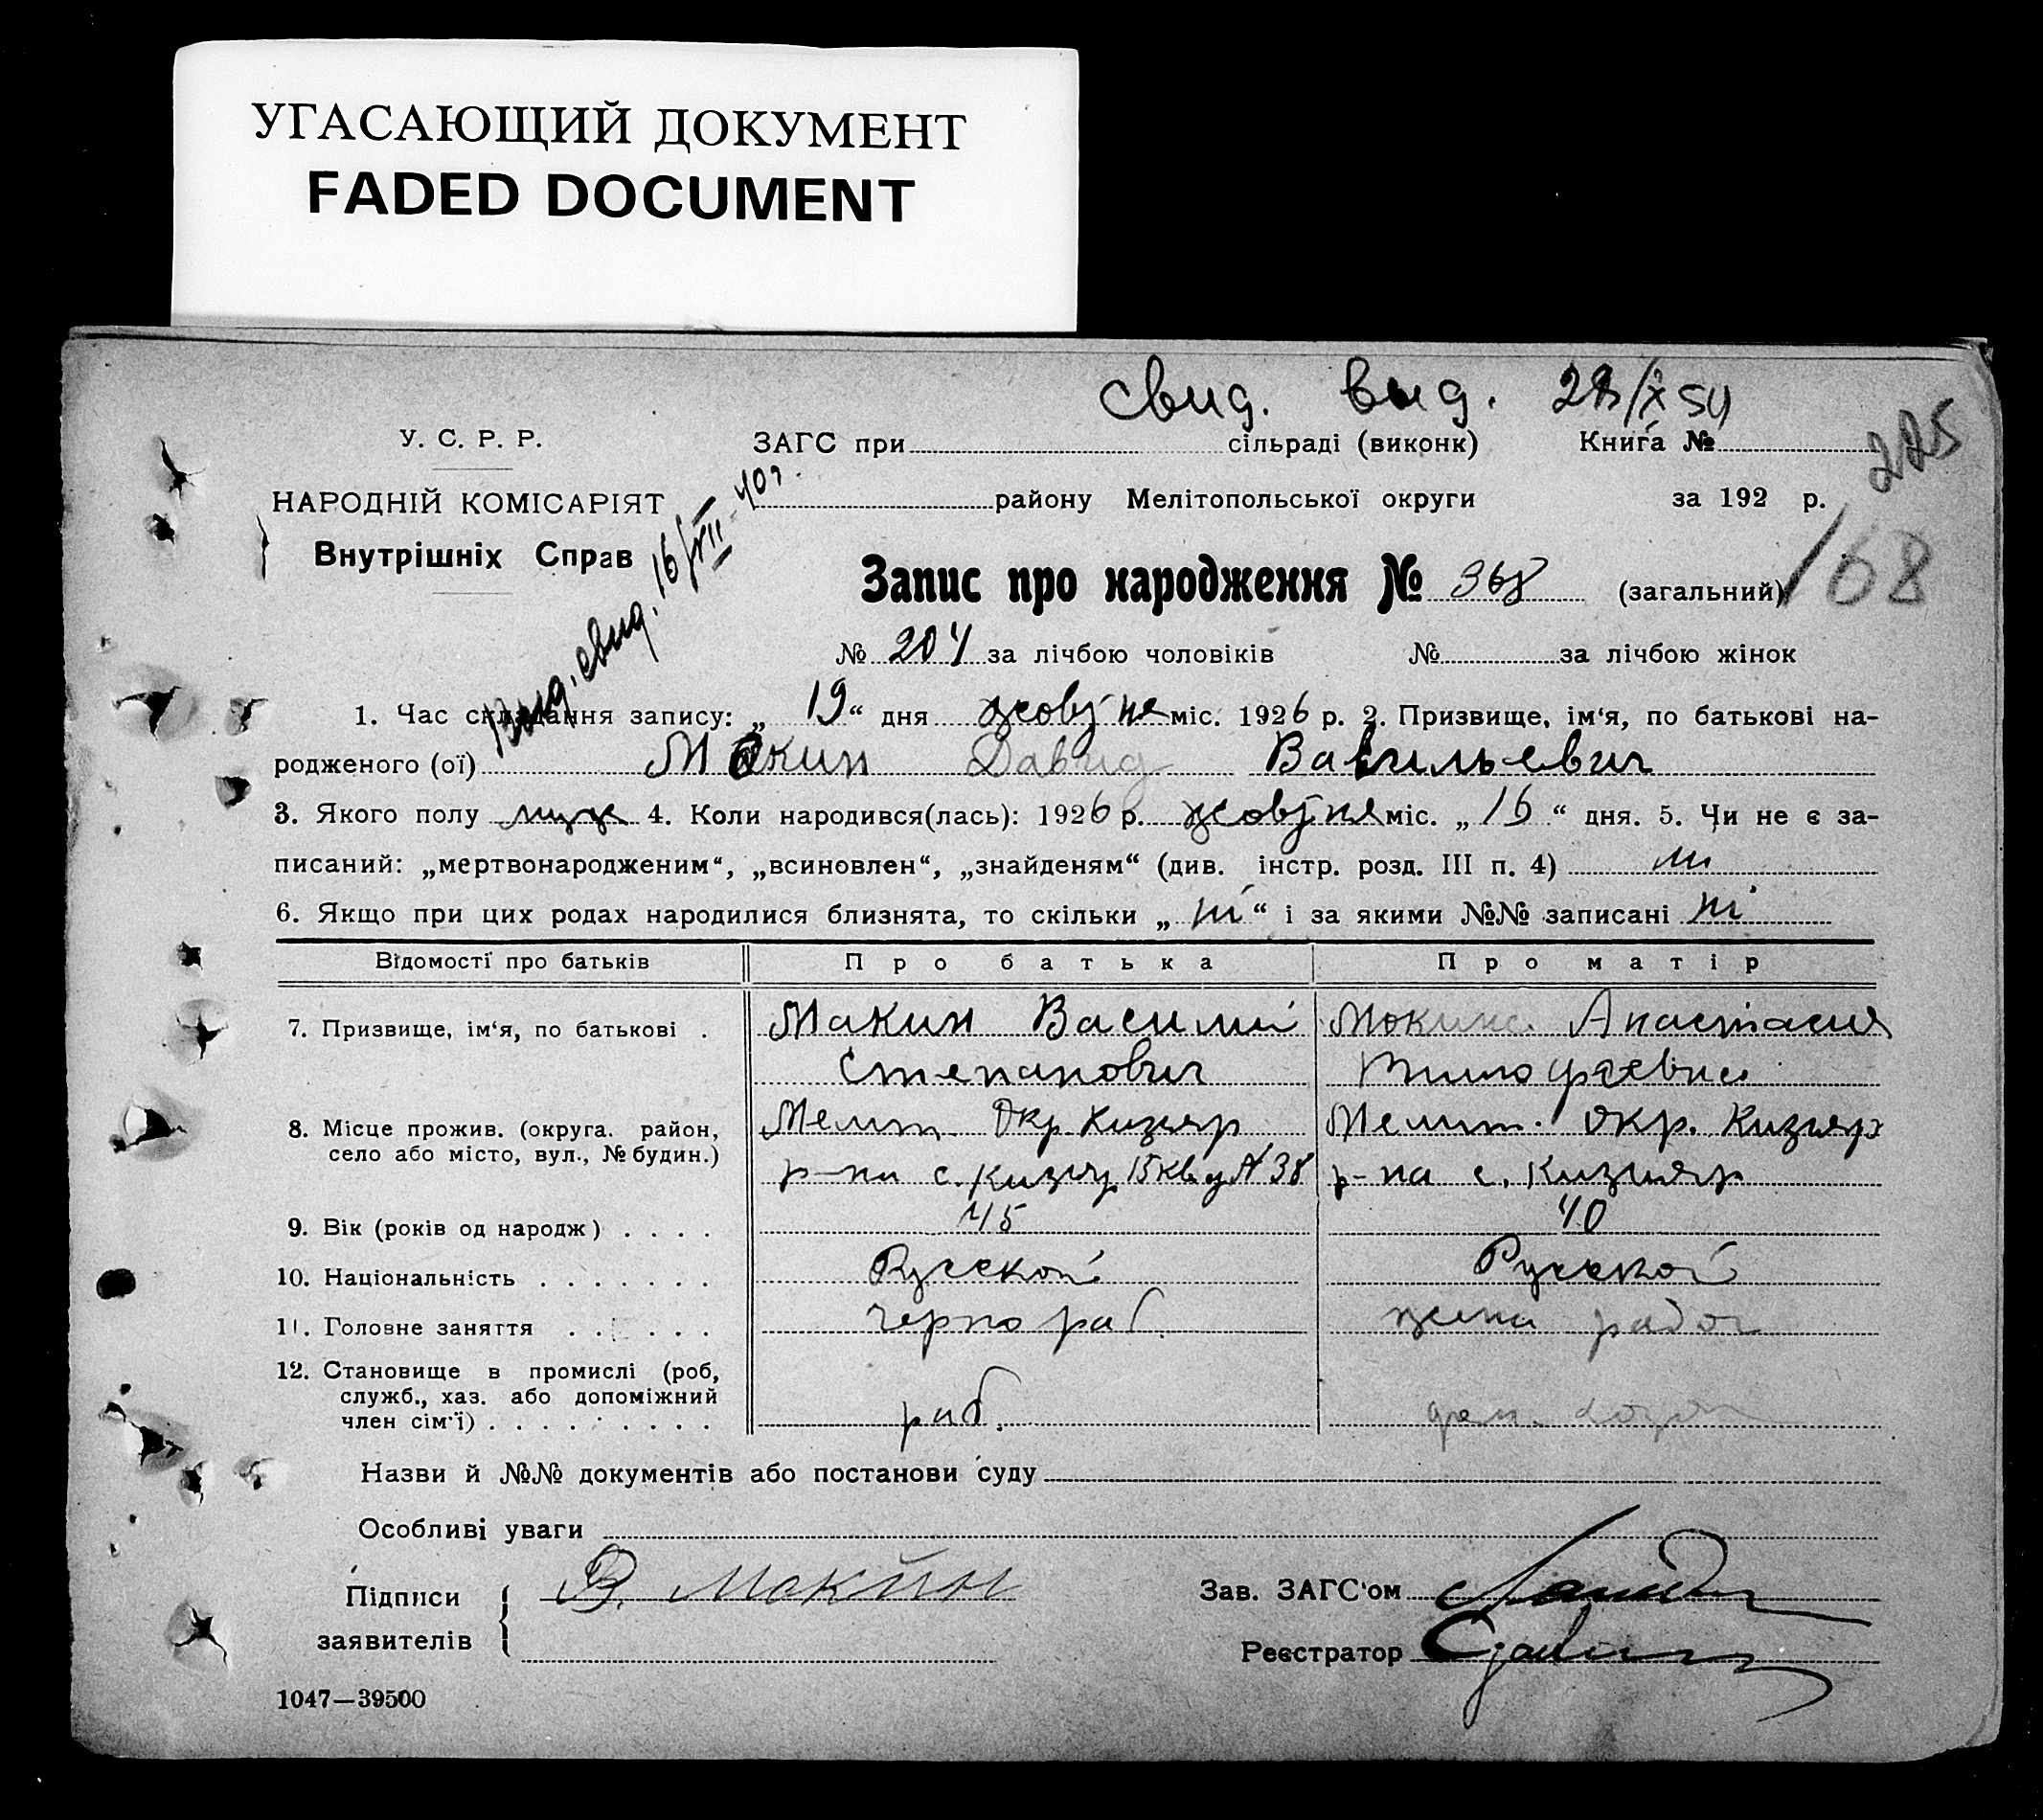 УГАСАЮЩИЙ ДОКУМЕНТ
FADED DOCUMENT
свид. выд. 28/X 54
У. С. Р. Р.
ЗАГС при сільраді (виконк) Книга №
225
НАРОДНІЙ КОМІСАРІЯТ
Внутрішніх Справ
району Мелітопольської округи за 192 р.
Выд. свид. 16/VII-40г.
Запис про народження № 368 (загальний)
168
№ 204 за лічбою чоловіків № за лічбою жінок
1. Час складання запису: „ 19 “ дня жовтня міс. 1926 р. 2. Призвище, ім‘я, по батькові на-
родженого (ої) Мокин Давид Васильевич
3. Якого полу муж 4. Коли народився(лась): 1926 р. жовтня міс. „ 16 “ дня. 5. Чи не є за-
писаний: „мертвонародженим“, „всиновлен“, „знайденям“ (див. інстр. розд. III п. 4) ні
6. Якщо при цих родах народилися близнята, то скільки „ ні “ і за якими №№ записані ні
Відомості про батьків Про батька Про матір
7. Призвище, ім‘я, по батькові . Макин Василий Мокина Анастасия
Степанович Тимофеевна
8. Місце прожив. (округа. район, Мелит. Окр. Кизияр Мелит. Окр. Кизияр
село або місто, вул., № будин.) р-на с. Кизияр 15 кв. д № 38 р-на с. Кизияр
9. Вік (років од народж) . . . . 45 40
10. Національність . . . . . . . Русской Русской
11. Головне заняття . . . . . . чернораб. жена рабоч
12. Становище в промислі (роб,
служб., хаз. або допоміжний
член сім‘ї) . . . . . . . . . раб.
Назви й №№ документів або постанови суду
Особливі уваги
Підписи
заявителів
В. Мокин
Зав. ЗАГС‘ом
Реєстратор
1047—39500